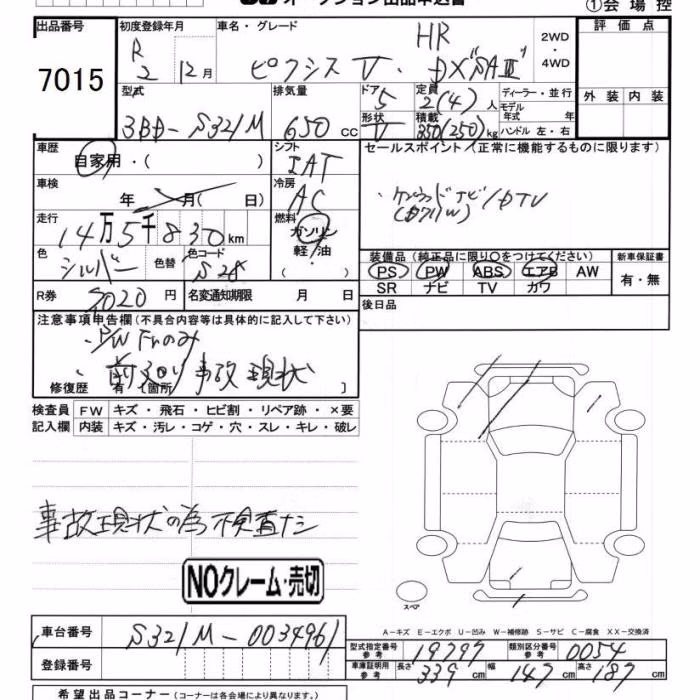 オークション出品申込書
①会場控
出品番号 7015
初度登録年月 R 2 12月
車名・グレード HR ピクシス V・DX"SAⅢ"
2WD・4WD
評価点
外装 内装
型式 3BD-S321M
排気量 650 cc
ドア 5
形状 V
定員 2(4)人
積載 350(250)kg
ディーラー・並行
モデル年式 年
ハンドル 左・右
車歴 自家用・( )
シフト IAT
車検 年 月( 日)
冷房 AC
走行 14万5千830km
燃料 ガソリン 軽・油 ( )
色 シルバー 色替
色コード S28
R券 9020 円
名変通知期限 月 日
セールスポイント(正常に機能するものに限ります)
・ケンウッドナビ/DTV
装備品(純正品に限り○をつけてください)
PS PW ABS エアB AW
SR ナビ TV カワ
新車保証書 有・無
後日品
注意事項申告欄(不具合内容等は具体的に記入して下さい)
・P/W Frのみ
・前廻り事故現状
修復歴 有(箇所 〕
検査員記入欄
FW キズ・飛石・ヒビ割・リペア跡・×要
内装 キズ・汚レ・コゲ・穴・スレ・キレ・破レ
事故現状の為検査ナシ
NOクレーム・売切
スペア
A-キズ E-エクボ U-凹み W-補修跡 S-サビ C-腐食 XX-交換済
車台番号 S321M-0034961
登録番号
型式指定番号参考 19797
類別区分番号参考 0054
車庫証明用参考 長さ 339cm 幅 147cm 高さ 187cm
希望出品コーナー(コーナーは各会場により異なります。)